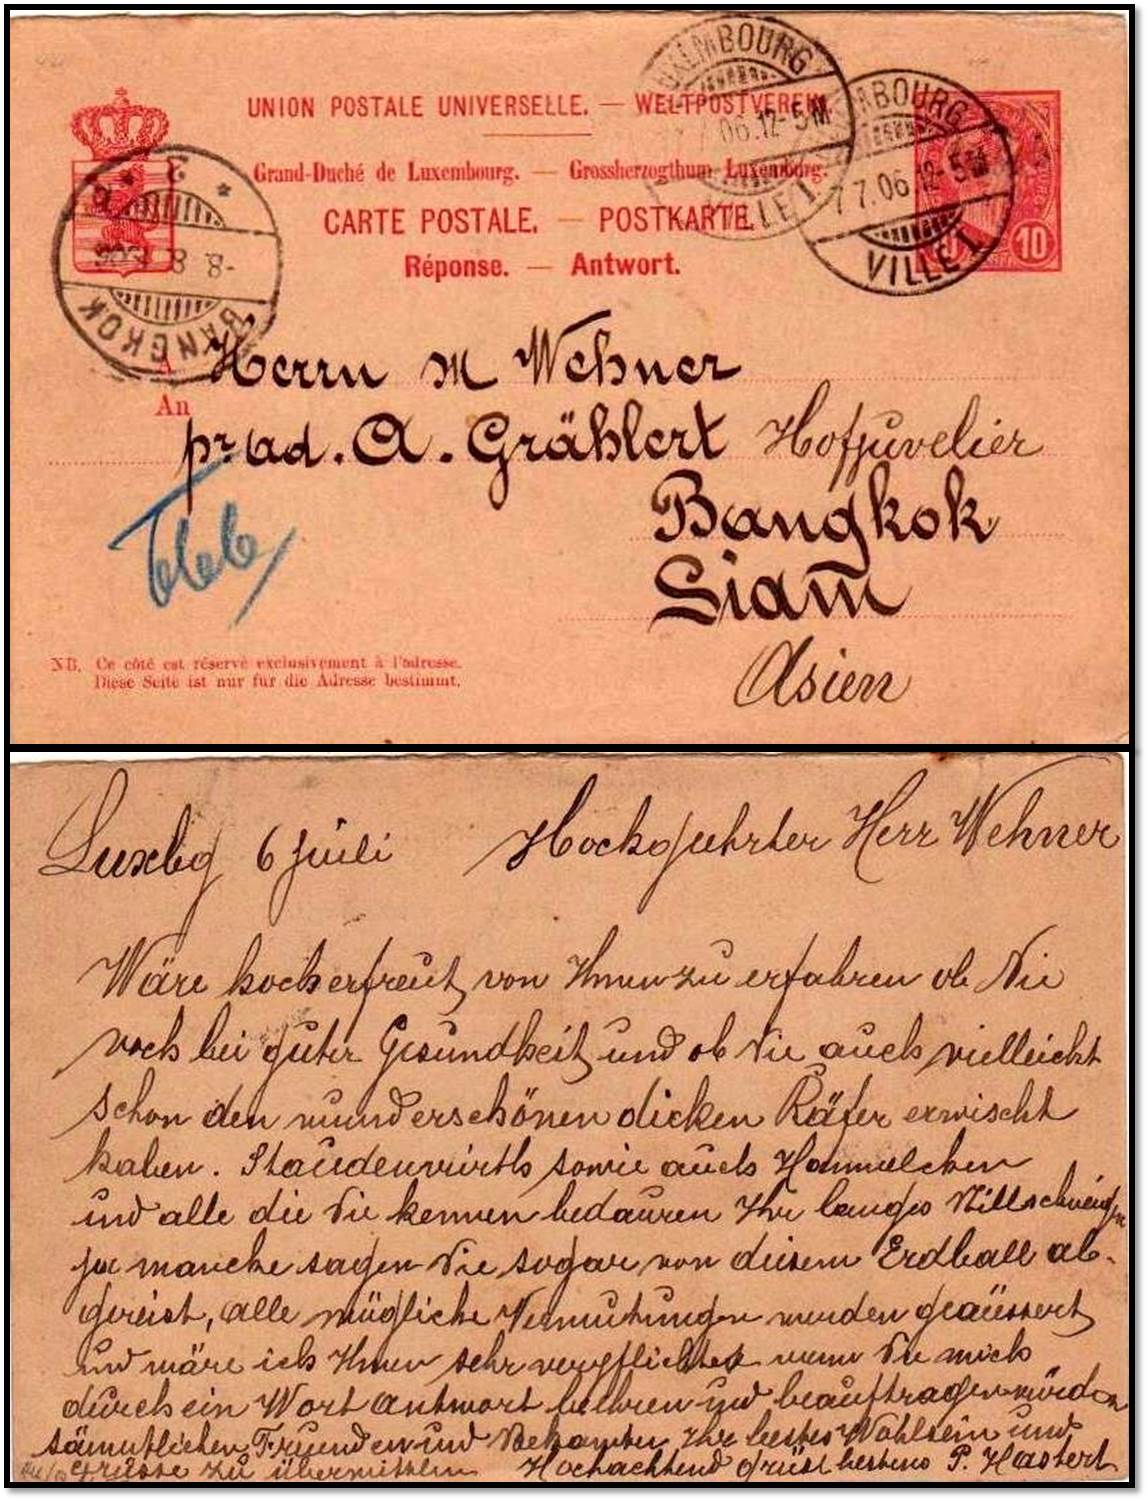 UNION POSTALE UNIVERSELLE. — WELTPOSTVEREIN.
Grand-Duché de Luxembourg. — Grossherzogthum Luxemburg.
CARTE POSTALE. — POSTKARTE.
Réponse. — Antwort.
LUXEMBOURG
7.06.12-5M
VILLE 1
LUXEMBOURG
7.7.06.12-5M
VILLE 1
10
BANGKOK
A
An
Herrn M Wehner
pr. ad. A. Grählert Hofjuvelier
Bangkok
Siam
Asien
NB. Ce côté est réservé exclusivement à l'adresse.
Diese Seite ist nur für die Adresse bestimmt.
Luxbg 6 Juli Hochgeehrter Herr Wehner
Wäre hocherfreut von Ihnen zu erfahren ob Sie
noch bei guter Gesundheit und ob Sie auch vielleicht
schon den wunderschönen dicken Käfer erwischt
haben. Staudenwirths sowie auch Hammelchen
und alle die Sie kennen bedauren Ihr langes Stillschweigen
ja manche sagen Sie sogar von diesem Erdball ab-
gereist, alle mögliche Vermutungen werden geäussert
und wäre ich Ihnen sehr verpflichtet wenn Sie mich
durch ein Wort Antwort belehren und beauftragen würden
sämmtlichen Freunden und Bekannten Ihr bestes Wohlsein und
Grüsse zu übermitteln Hochachtend grüst bestens P. Hastert